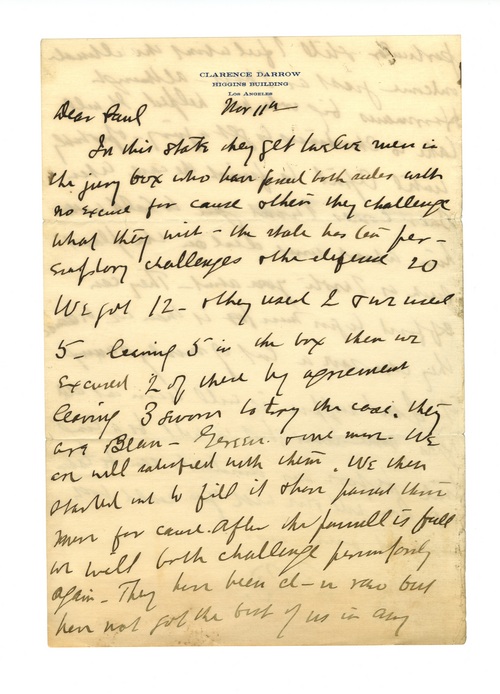 CLARENCE DARROW
HIGGINS BUILDING
LOS ANGELES
Dear Paul Nov 11th
In this state they get twelve men in
the jury box who have passed both sides with
no excuse for cause then they challenge
what they wish – the state has ten per-
emptory challenges & the defense 20
We got 12 – & they used 2 & we used
5 – leaving 5 in the box then we
excused 2 of these by agreement
leaving 3 sworn to try the case. they
are Bean – Green & one more. We
are well satisfied with them. We then
started out to fill it & have passed three
more for cause. After the pannell is full
we will both challenge
again – They have been but
have not got the best of us in any